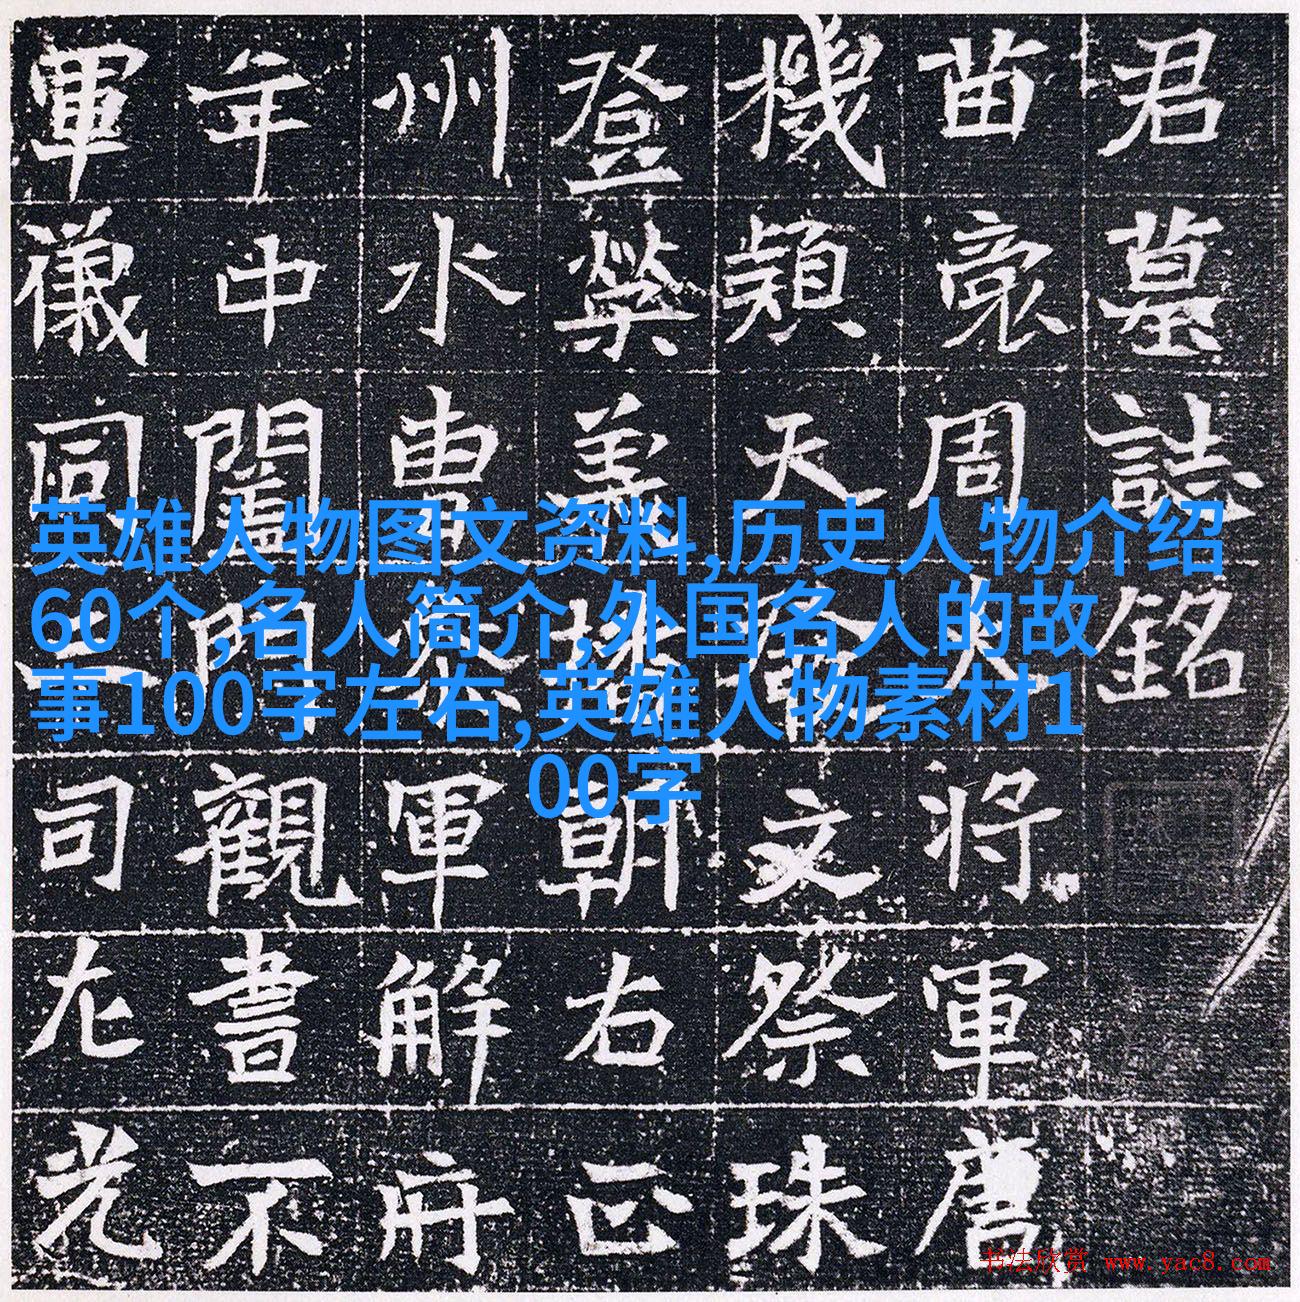 英雄人物图文资料,历史人物介绍
60个,名人简介,外国名人的故
事100字左右,英雄人物素材1
00字
君墓誌銘
苗裔周大將軍唐
機穎天文祭珠
登榮美朝右正
州水曹參軍解府
年中闔門觀書不
軍儀同三司左光
书法欣赏 www.yac8.com